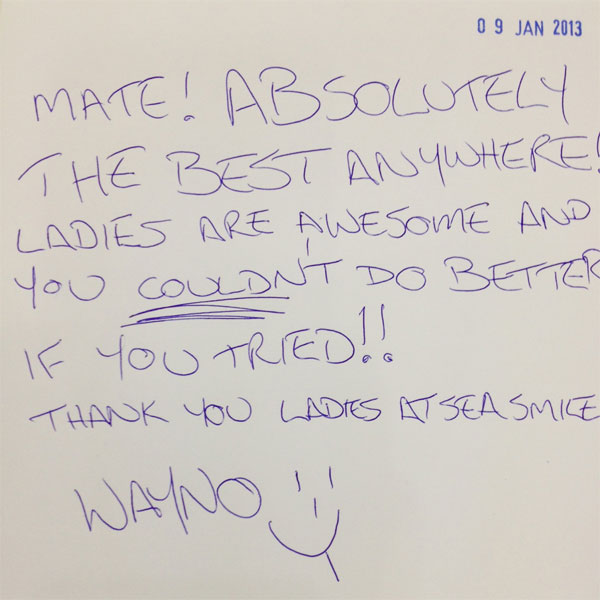 09 JAN 2013
MATE! ABSOLUTELY
THE BEST ANYWHERE!
LADIES ARE AWESOME AND
YOU COULDN'T DO BETTER
IF YOU TRIED!!
THANK YOU LADIES AT SEA SMILE
WAYNO